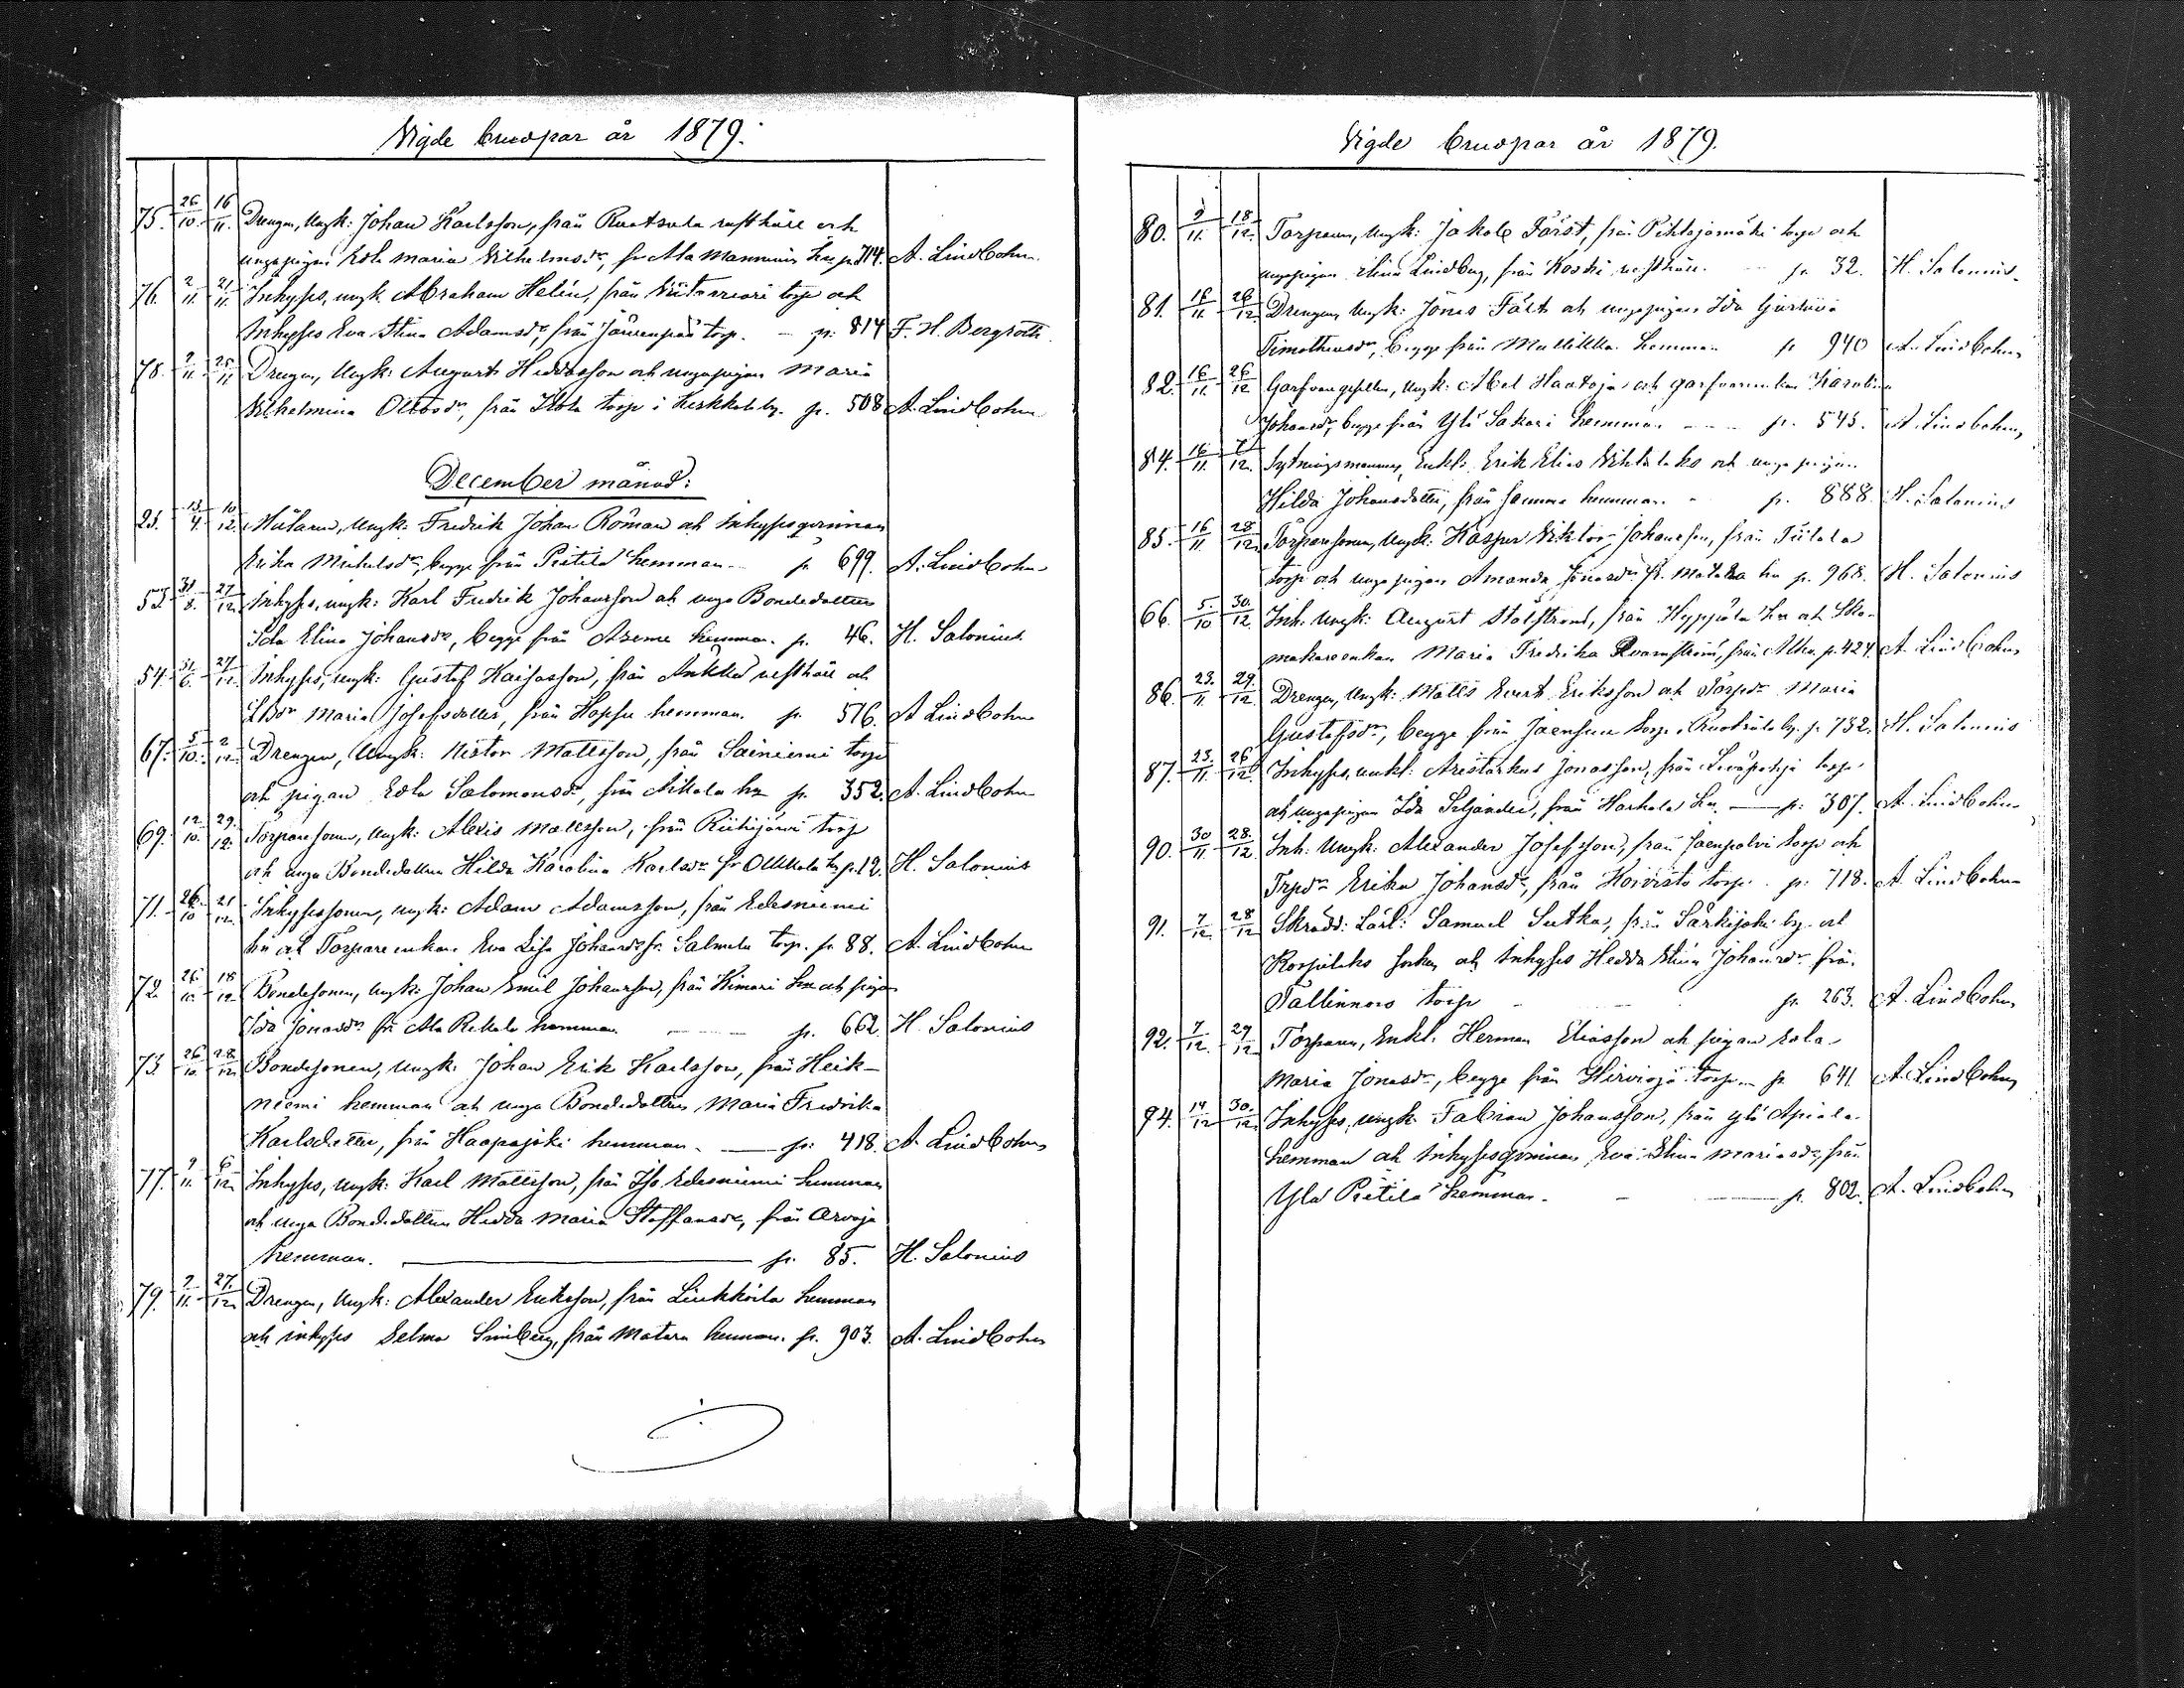 Vigde brudpar år 1879.
75. 26/10. 16/11. Drengen, Ungk: Johan Karlsson, från Ruotsala rusthåll och
ungapigan Edla Maria Vilhelmsdr, fr Ala Mannunis hn p. 714. A. Lindbohm
76. 2/11. 21/11. Inhyses, ungk. Abraham Helin, från torp och
Inhyses Eva Stina Adamsdr, från Jänsenpää torp. - p: 814 F. H. Bergroth
78. 9/11. 25/11 Drengen, Ungk: August Heddasson och ungapigan Maria
Vilhelmina Ottosdr, från Ilola torp i Kerkkola by. p. 508 A. Lindbohm
December månad:
23. 13/4. 10/12. Målaren, Ungk: Fredrik Johan Roman och Inhysesqvinnan
Erika Michelsdr, begge från Pietilä hemman p 699. A. Lindbohm
53. 31/8. 27/12. Inhyses, ungk: Karl Fredrik Johansson och unga Bondedottren
Ida Elina Johansdr, begge från hemman. p. 46. H. Salonius
54. 27/12. Inhyses, ungk: Gustaf Kaisasson, från Ankka rusthåll och
Maria Josefsdotter, från Hopsu hemman. p. 516. A Lindbohm
67. 5/10. 2/12. Drengen, Ungk: Nestor Mattsson, från Sainiemi torp
och pigan Edla Salomonsdr, från Aikala hn p. 352. A. Lindbohm
69. 12/10. 29/12. Torparesonen, ungk: Alexis Mattsson, från Riihijärvi torp
och unga Bondedottren Hilda Karolina Karlsdr fr Ollikkala hn p. 12. H. Salonius
71. 26/10 21/12. Inhysessonen, ungk: Adam Adamsson, från Edesniemi
hn och Torpareenkan Eva Lisa Johansdr fr. Salmela torp. p. 88. A. Lindbohm
72. 26/10. 18/12. Bondesonen, ungk: Johan Emil Johansson, från Kimari hn och pigan
Ida Jonasdr fr. Ala Rekola hemman p. 662. H. Salonius
73. 26/10. 28/12. Bondesonen, ungk: Johan Erik Karlsson, från Heik-
niemi hemman och unga Bondedottren Maria Fredrika
Karlsdotter, från Haapajoki hemman. p: 418. A. Lindbohm
77. 9/11. 6/12. Inhyses, ungk: Karl Mattsson, från Iso Edesniemi hemman
och unga Bondedottren Hedda Maria Staffansdr, från Arvaja
hemman. p. 85. H. Salonius
79. 9/11. 27/12. Drengen, Ungk: Alexander Eriksson, från Liukkoila hemman
och inhyses Selma Limberg, från Matara hemman. p. 903. A. Lindbohm
Vigde brudpar år 1879.
80. 9/11. 18/12. Torparen, Ungk: Jakob Först, från Pihlajamäki torp och
ungapigan Elina Lindberg, från Koski rusthåll. p. 32. H. Salonius.
81. 16/11. 26/12. Drengen, Ungk: Jonas Fält och ungapigan Ida Gustava
Timotheusdr, begge från Mullikka hemman p 940 A. Lindbohm
82. 16/11. 26/12 Garfvaregesellen, Ungk: Abel Haatoja och garfvareenkan Karolina
Johansdr, begge från Yli Sakari hemman p. 545. A. Lindbohm,
84. 16/11. 7/12. Sytningsmannen, Enkl. Erik Elias och unga pigan
Hilda Johansdotter, från samma hemman. p. 888. H. Salonius
85. 16/11. 28/12. Torparesonen, Ungk: Kasper Viktor Johansson, från Tiilola
torp och unga pigan Amanda Jonasdr fr. Matara hn p. 968. H. Salonius
66. 5./10 30./12. Inh. Ungk: August Stolström, från Hyppölä hn och Sko-
makareenkan Maria Fredrika Qvarnström, från p. 424. A. Lindbohm
86. 23./11. 29./12. Drengen, Ungk: Matts Evert Eriksson och Torpdr Maria
Gustafsdr, begge från Jaensuu torp i Ruotsila by. p. 732. H. Salonius
87. 23./11. 26/12. Inhyses, enkl: Aristarkus Jonasson, från Leväpohja torp
och ungapigan Ida Siljander, från Harhala hn. p: 307. A. Lindbohm
90. 30/11. 28./12 Inh: Ungk: Alexander Josefsson, från Jaenpolvi torp och
Trpdr Erika Johansdr, från Koivisto torp. p: 718. A. Lindbohm
91. 7/12. 28/12 Skrädd: Lärl: Samuel Sutka, från Särkijoki by af
Korpilaks socken och Inhyses Hedda Stina Johansdr från
Tallinmäs torp p. 263. A. Lindbohm
92. 7/12. 29/12. Torparen, Enkl. Herman Eliasson och pigan Edla
Maria Jonasdr, begge från Hirvioja torp. p. 641. A. Lindbohm
94. 14/12 30./12. Inhyses, ungk: Fabian Johansson, från Yli Apiala
hemman och Inhysesqvinnan Eva Stina Mariasdr, från
Ylä Pietilä hemman. p. 802. A. Lindbohm